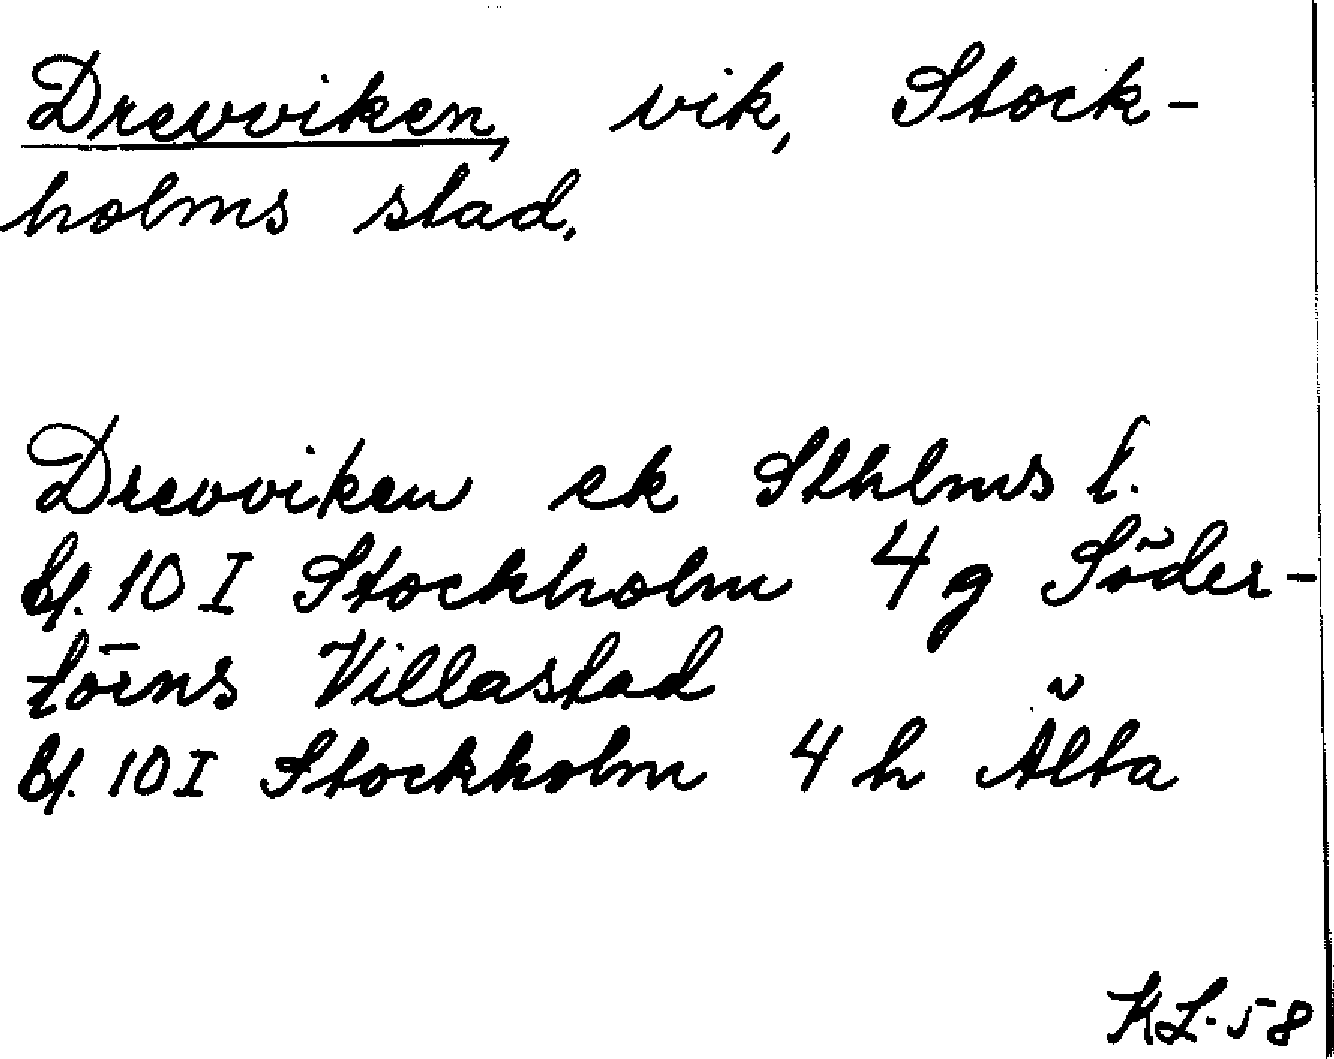 Drevviken, vik, Stock-
holms stad.
Drevviken ek Sthlms l.
Bl. 10 I Stockholm 4 g Söder-
törns Villastad
Bl. 10 I Stockholm 4 h Älta
KL. 58